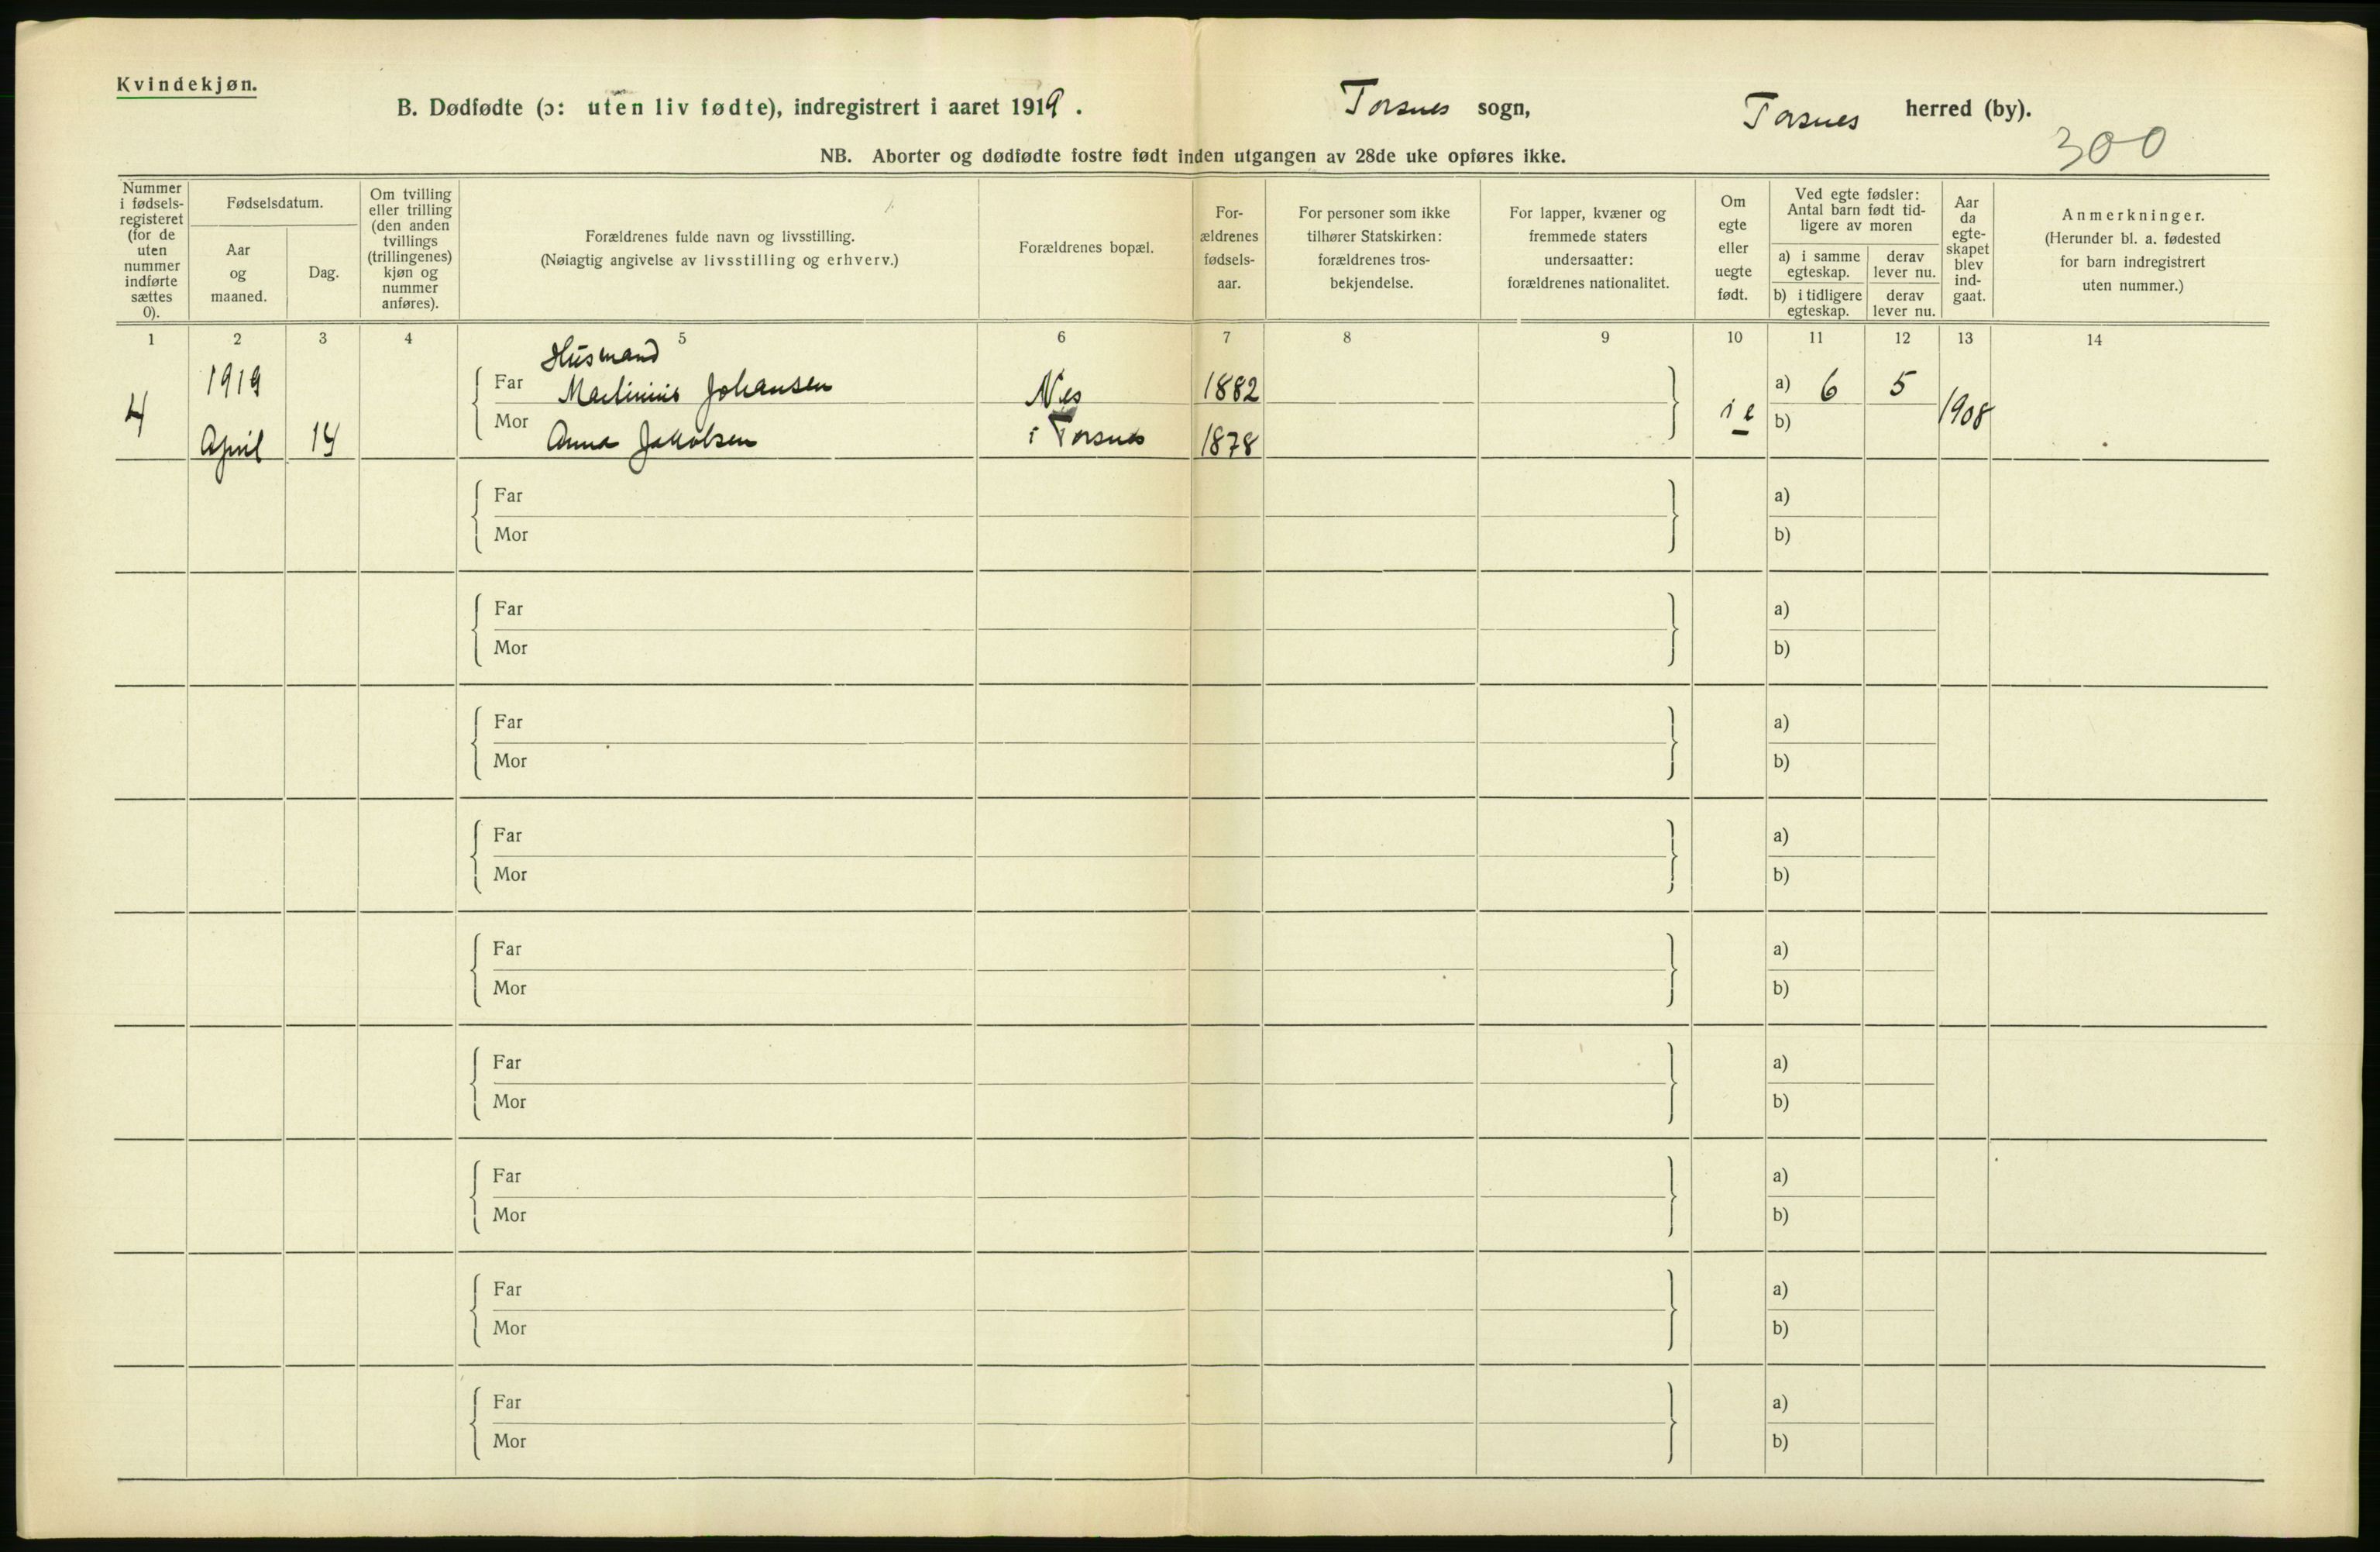 Kvindekjøn.
B. Dødfødte (ɔ: uten liv fødte), indregistrert i aaret 1919. Torsnes sogn, Torsnes herred (by).
300
NB. Aborter og dødfødte fostre født inden utgangen av 28de uke opføres ikke.
Nummer i fødsels-registeret (for de uten nummer indførte sættes 0).
Fødselsdatum.
Aar og maaned.
Dag.
Om tvilling eller trilling (den anden tvillings (trillingenes) kjøn og nummer anføres).
Forældrenes fulde navn og livsstilling.
(Nøiagtig angivelse av livsstilling og erhverv.)
Forældrenes bopæl.
For-ældrenes fødsels-aar.
For personer som ikke tilhører Statskirken: forældrenes tros-bekjendelse.
For lapper, kvæner og fremmede staters undersaatter: forældrenes nationalitet.
Om egte eller uegte født.
Ved egte fødsler: Antal barn født tid-ligere av moren
a) i samme egteskap.
derav lever nu.
b) i tidligere egteskap.
derav lever nu.
Aar da egte-skapet blev ind-gaat.
Anmerkninger.
(Herunder bl. a. fødested for barn indregistrert uten nummer.)
1 2 3 4 5 6 7 8 9 10 11 12 13 14
Husmand
4 1919 Far Martinius Johansen Nes 1882 a) 6 5
April 14 Mor Anna Jakobsen i Torsnes 1878 i e b) 1908
Far a)
Mor b)
Far a)
Mor b)
Far a)
Mor b)
Far a)
Mor b)
Far a)
Mor b)
Far a)
Mor b)
Far a)
Mor b)
Far a)
Mor b)
Far a)
Mor b)